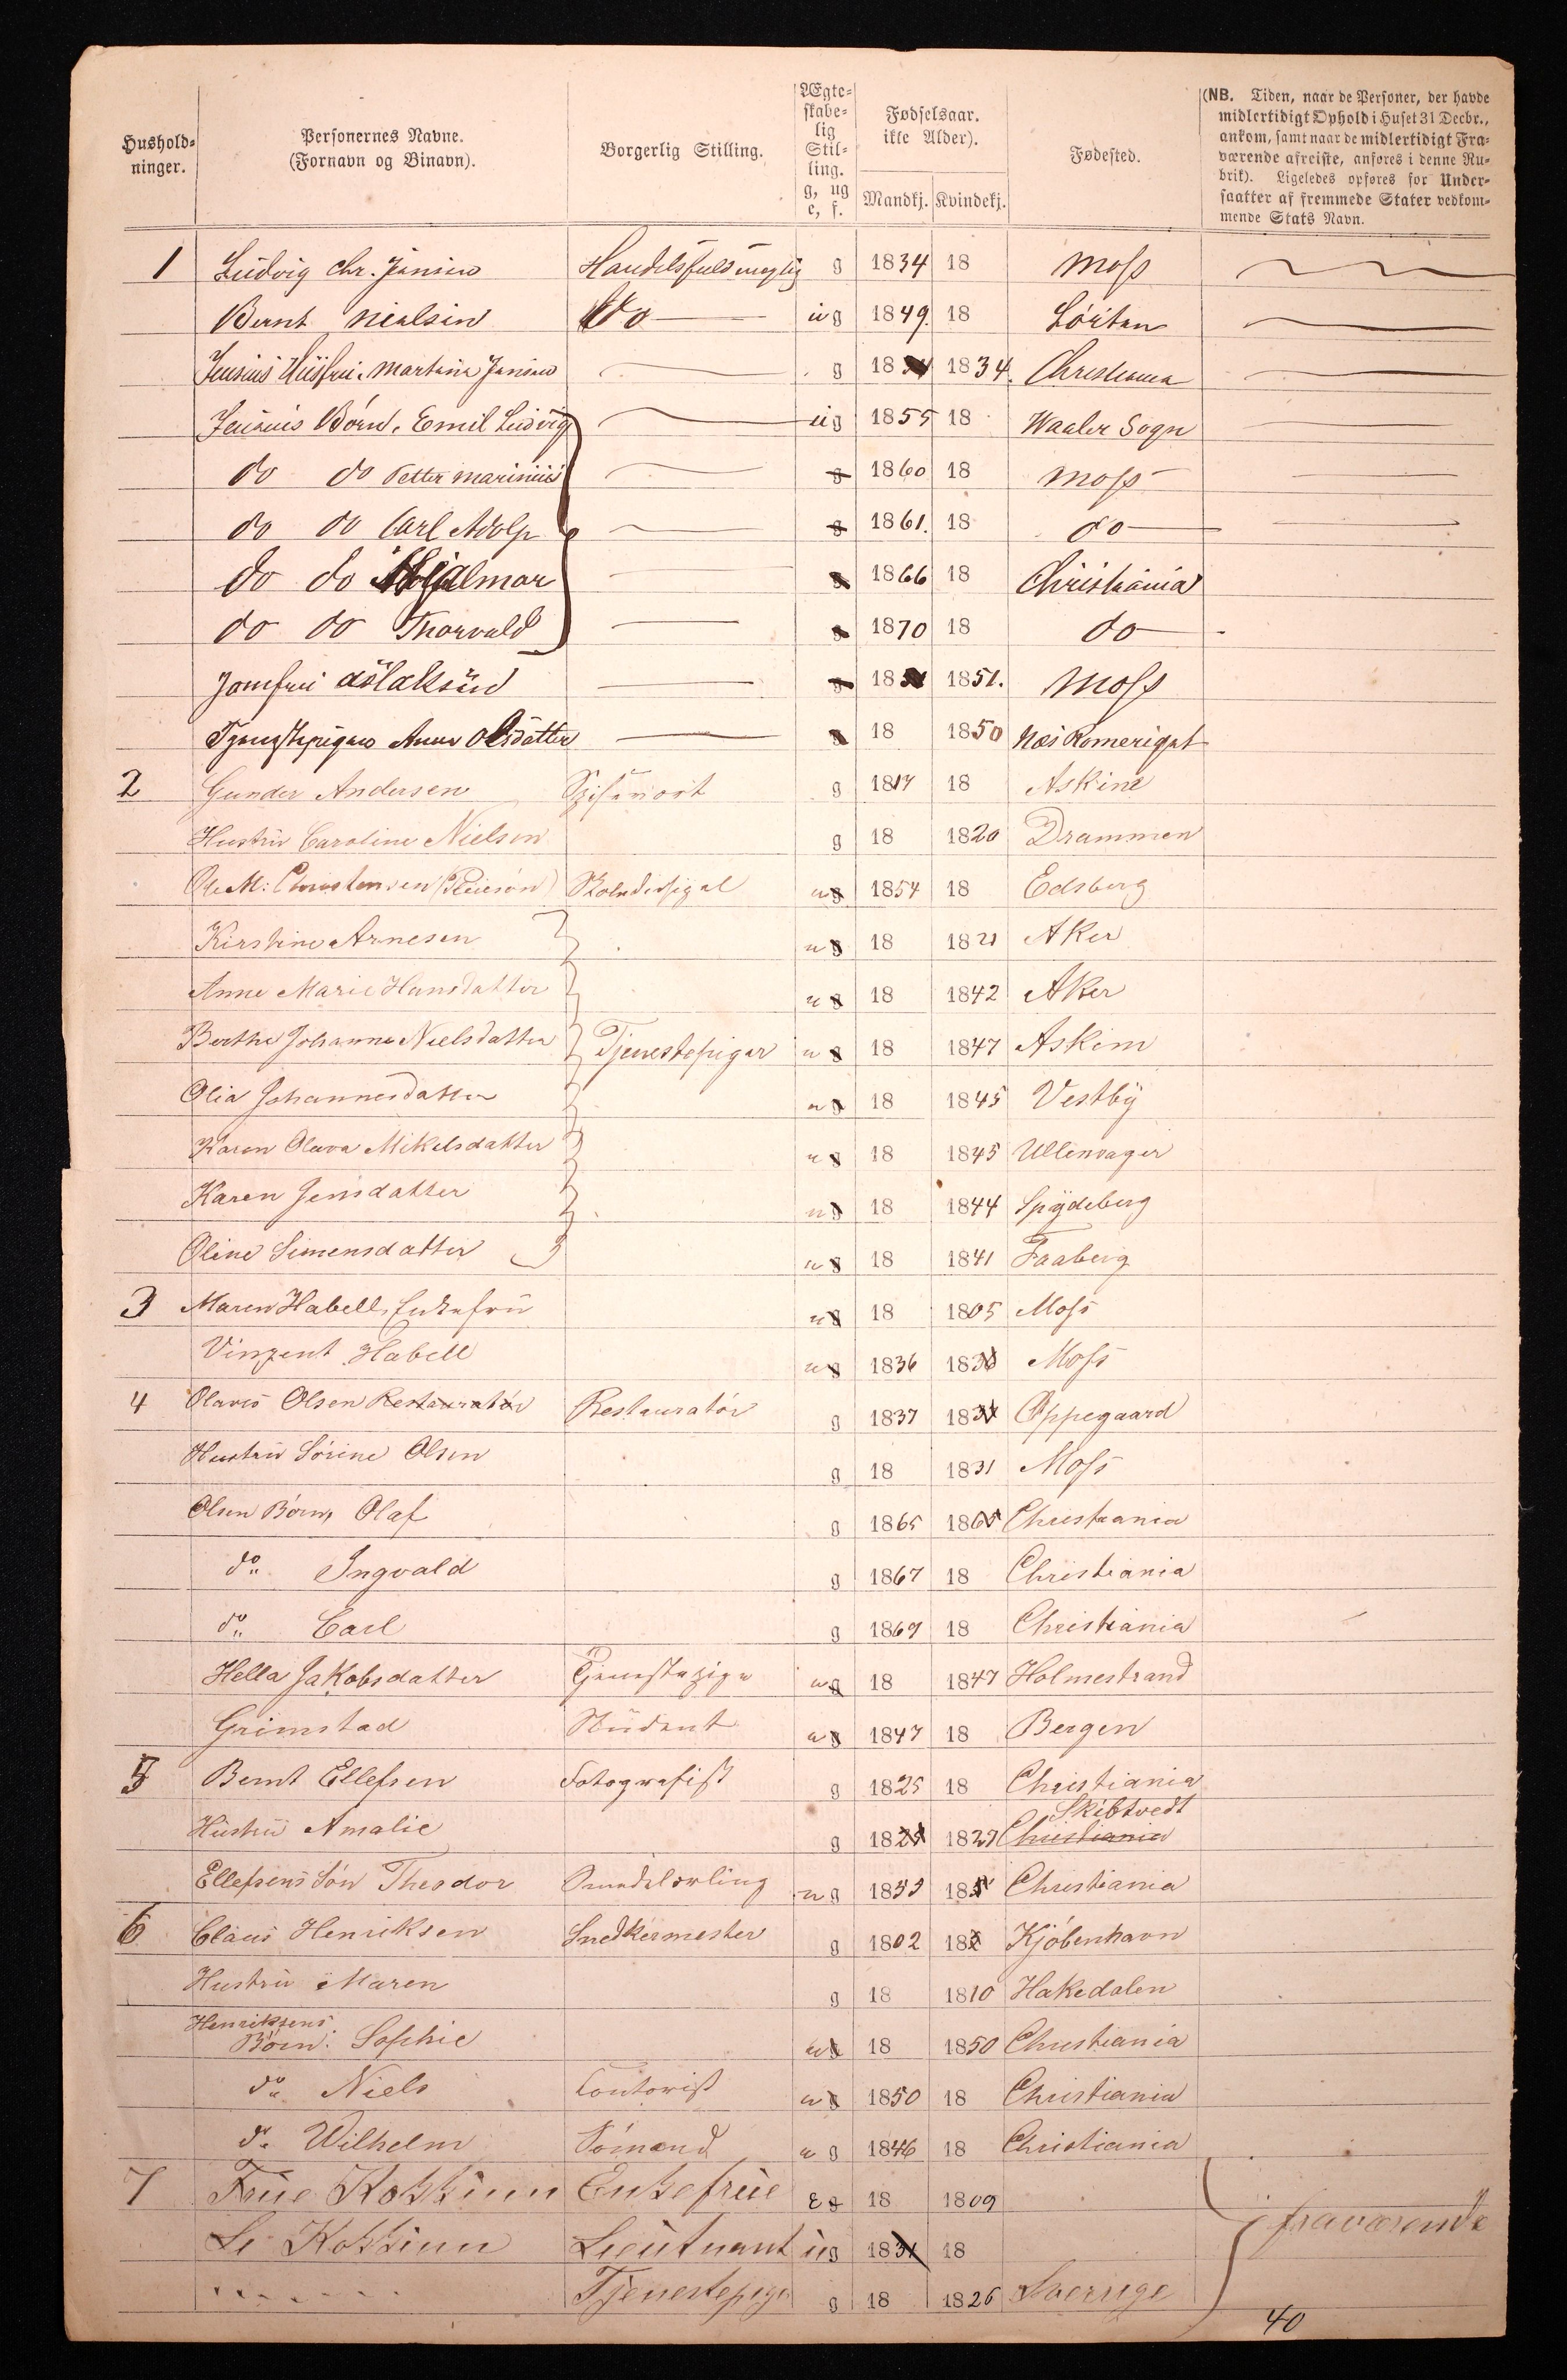 Hushold-
ninger.
Personernes Navne.
(Fornavn og Binavn).
Borgerlig Stilling.
Ægte-
skabe-
lig
Stil-
ling.
g, ug
e, f.
Fødselsaar.
ikke Alder).
Mandkj. Kvindekj.
Fødested.
(NB. Tiden, naar de Personer, der havde
midlertidigt Ophold i Huset 31 Decbr.,
ankom, samt naar de midlertidigt Fra-
værende afreiste, anføres i denne Ru-
brik). Ligeledes opføres for Under-
saatter af fremmede Stater vedkom-
mende Stats Navn.
1 Ludvig Chr. Jensen g 1834 18 Moss
Bernt Nielsen do ug 1849. 18
Jensens Husfru. Martina Jensen g 18 1834. Christiania
Jensens Børn. Emil Ludvig ug 1855 18 Waaler Sogn
do do Petter Marinius g 1860 18 Moss
do do Carl Adolp g 1861. 18 do
do do Hjalmar g 1866 18 Christiania
do do Thorvald g 1870 18 do
Jomfru Aslaksen g 18 1851. Moss
Tjenestepigen Anne Olsdatter g 18 1850 Næs Romeriget
2 Gunder Andersen g 1817 18 Askim
Hustru Caroline Nielsen g 18 1820 Drammen
Ole M: Christensen ug 1854 18 Edsberg
Kirstine Arnesen ug 18 1821 Aker
Anne Marie Hansdatter ug 18 1842 Aker
Berthe Johanne Nielsdatter Tjenestepiger ug 18 1847 Askim
Olia Johannesdatter ug 18 1845 Vestby
Karen Olava Mikelsdatter ug 18 1845 Ullensager
Karen Jensdatter ug 18 1844 Spydeberg
Oline Simensdatter ug 18 1841 Faaberg
3 Maren Habell, Enkefru ug 18 1805 Moss
Vinzent Habell ug 1836 18 Moss
4 Olaves Olsen Restauratør Restauratør g 1837 18 Oppegaard
Hustru Sørine Olsen g 18 1831 Moss
Olsen Børn, Olaf g 1865 1865 Christiania
do Ingvald g 1867 18 Christiania
do Carl g 1869 18 Christiania
Hella Jakobsdatter Tjenestepige ug 18 1847 Holmestrand
Grimstad Student ug 1847 18 Bergen
5 Bernt Ellefsen Fotografist g 1825 18 Christiania
Skibtvedt
Hustru Amalie g 18 1827 Christiania
Ellefsens Søn Theodor ug 1855 18 Christiania
6 Claus Henriksen Snedkermester g 1802 18 Kjøbenhavn
Hustru Maren g 18 1810 Hakedalen
Henriksens
Børn: Sophie ug 18 1850 Christiania
do Niels Contorist ug 1850 18 Christiania
do Wilhelm Sømand ug 1846 18 Christiania
7 Frue Enkefrue eg 18 1809
Lieutnant ug 1831 18 fraværende
Tjenestepige g 18 1826 Sverrige
40